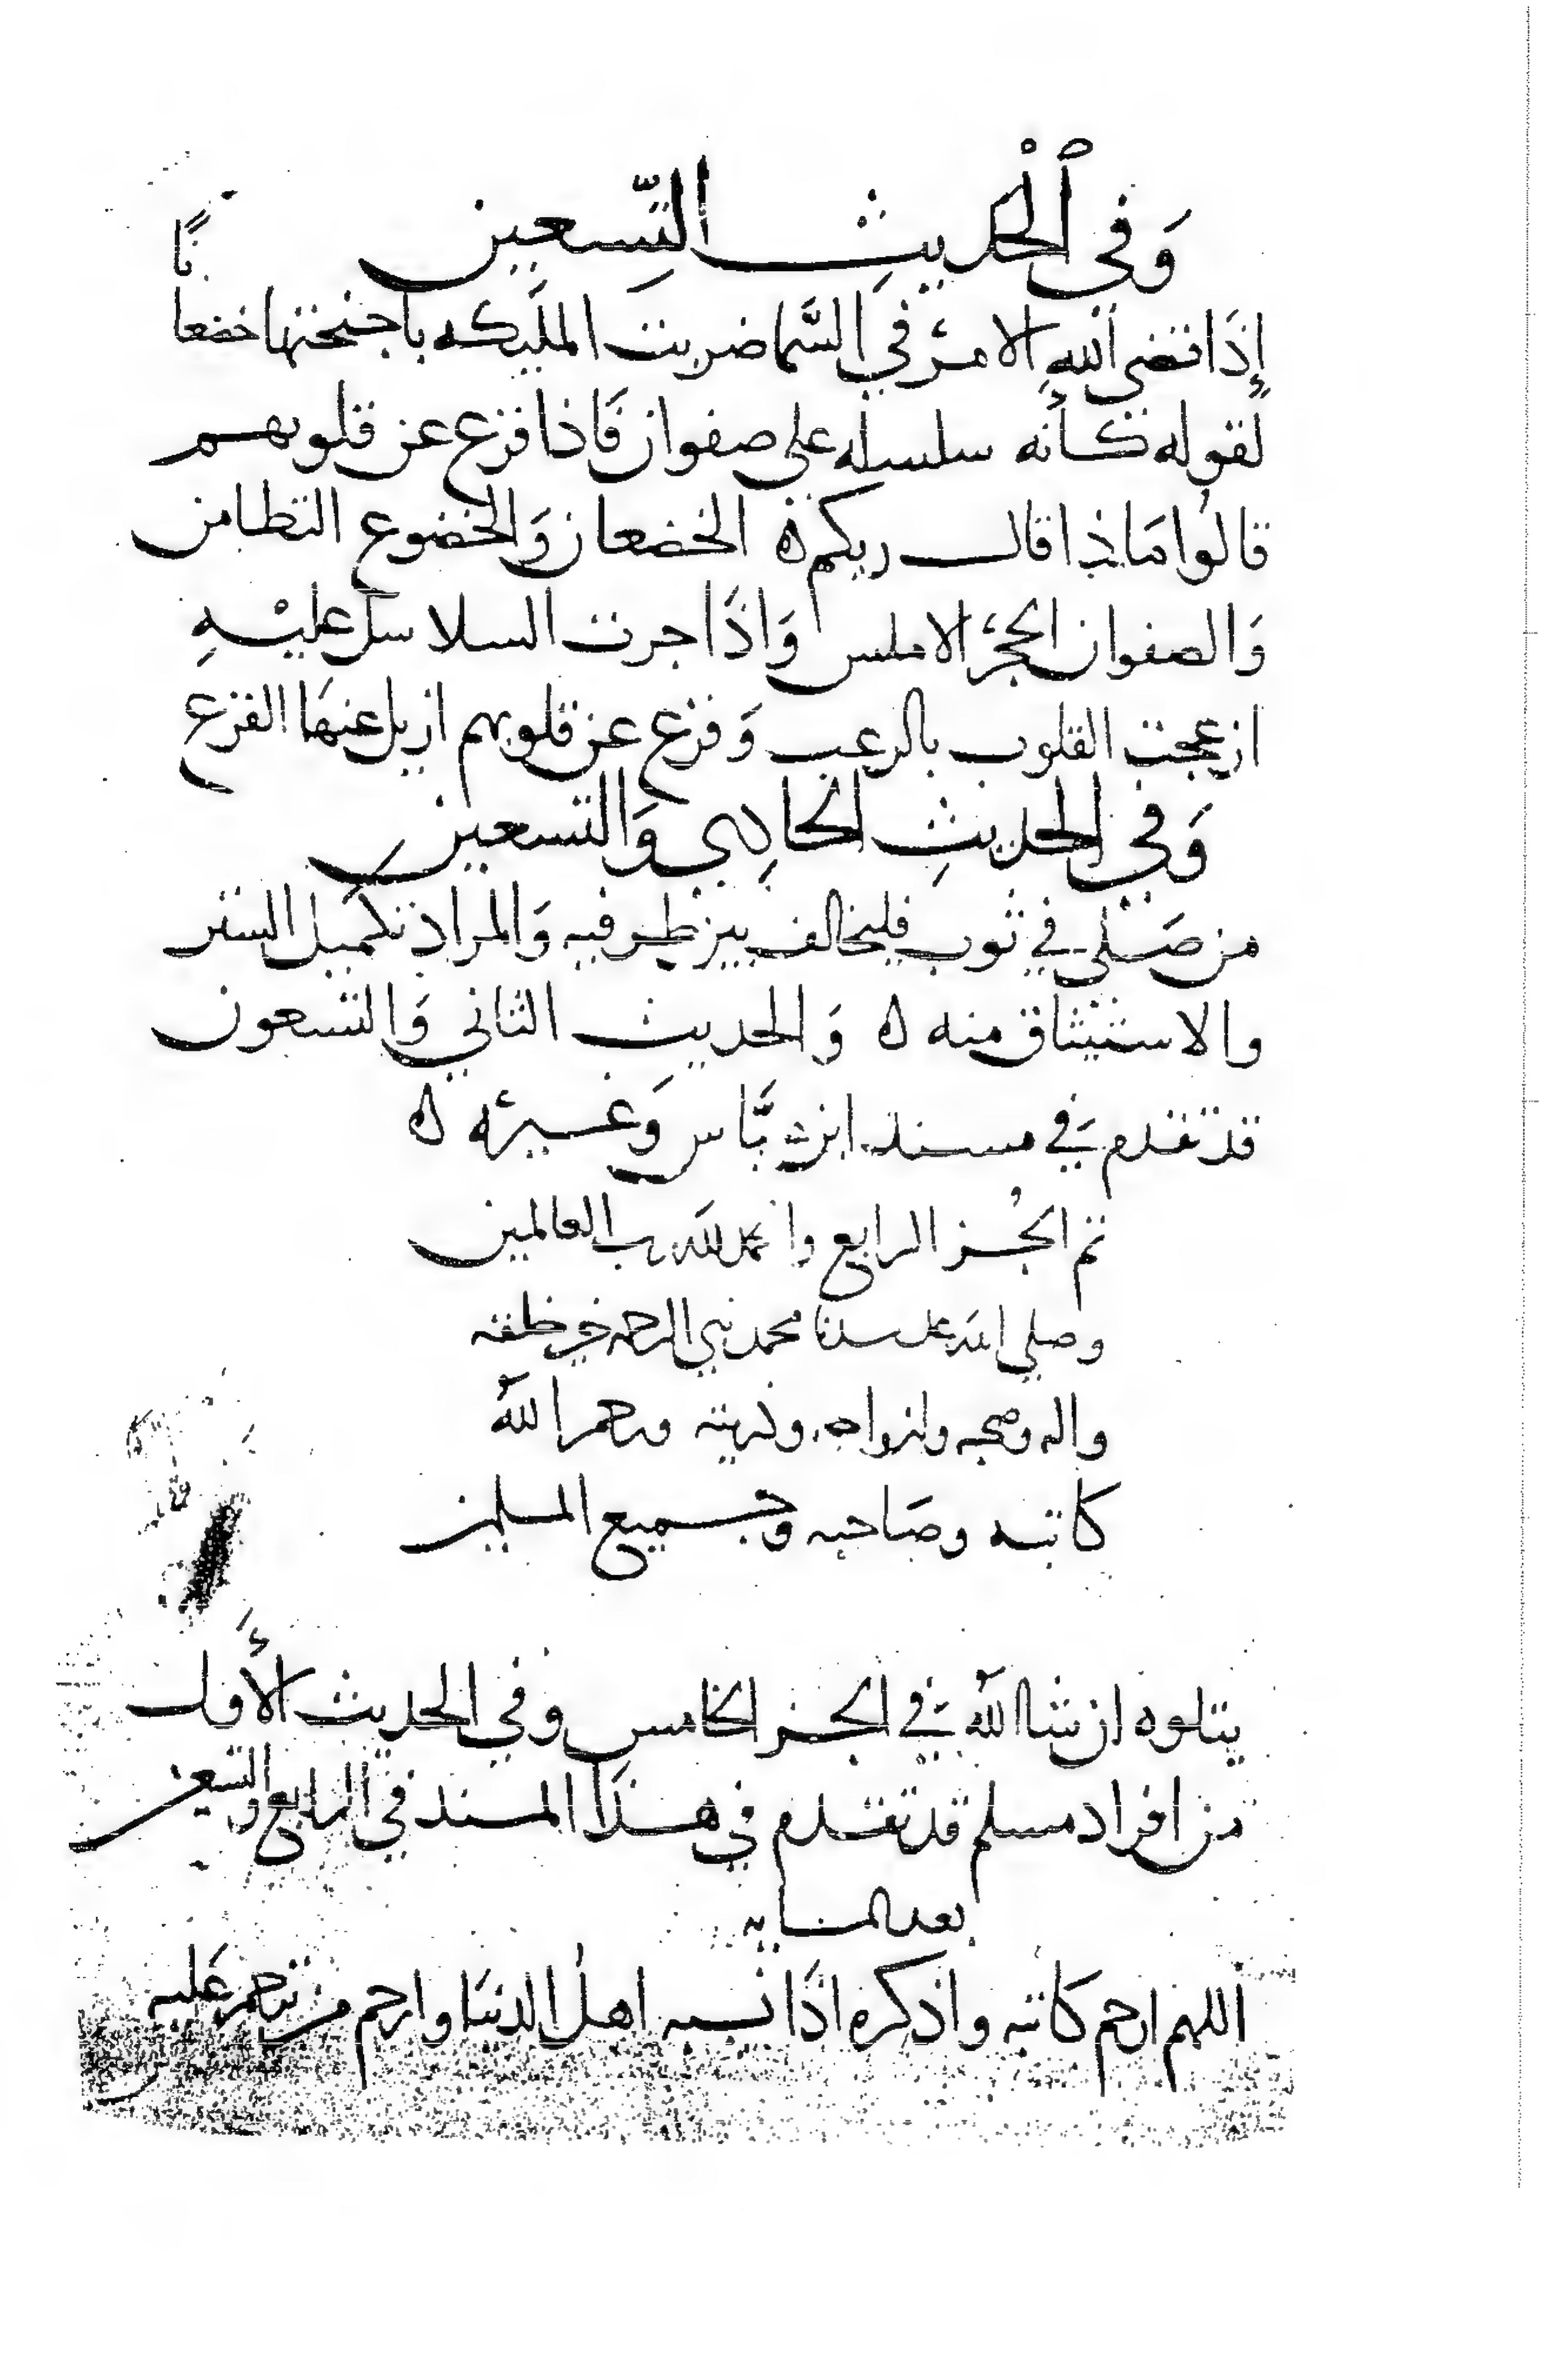 وَفي الْحَديثِ التِّسعين
إِذَا قضى اللهِ الامرَ في السَّما ضربت الملَيكه باجنحتها خضعانًا
لقوله كأنه سلسله على صفوان فَاذا فزع عن قلوبهم
قالوا مَاذا قال ربكم ه الخضعان وَالخضوع التطامن
وَالصفوان الحجرُ الاملس وَاذَا جرت السلاسل عليْهِ
ازعجت القلوب بالرعب وَفزع عن قلوبهم ازيل عنهَا الفزع
وَفي الحديثِ الحادِي وَالتسعين
من صَلى في ثوب فليخالف بين طرفيه وَالمراد تكميل الستر
والاستيثاق منه ه وَالحديث الثاني وَالتسعون
قد تقدم في مسند ابن عبَّاس وَغيره ه
تم الجُز الرابع والحمد لله رب العالمين
وصلى الله على سيدنا محمد نبي الرحمه خير خلقه
واله وصحبه وازواجه وذريته ورحم الله
كاتبه وصَاحبه وجميع المسلمين
يتلوه ان شا اللهُ في الجز الخامس وفي الحديث الأول
من افراد مسلم قد تقدم في هذَا المسند في الرابع والتسعين
بعد المايه
اللهم ارحم كَاتبه واذكره اذَا نسيه اهل الدنيَا وارحم من ترحم عَليه